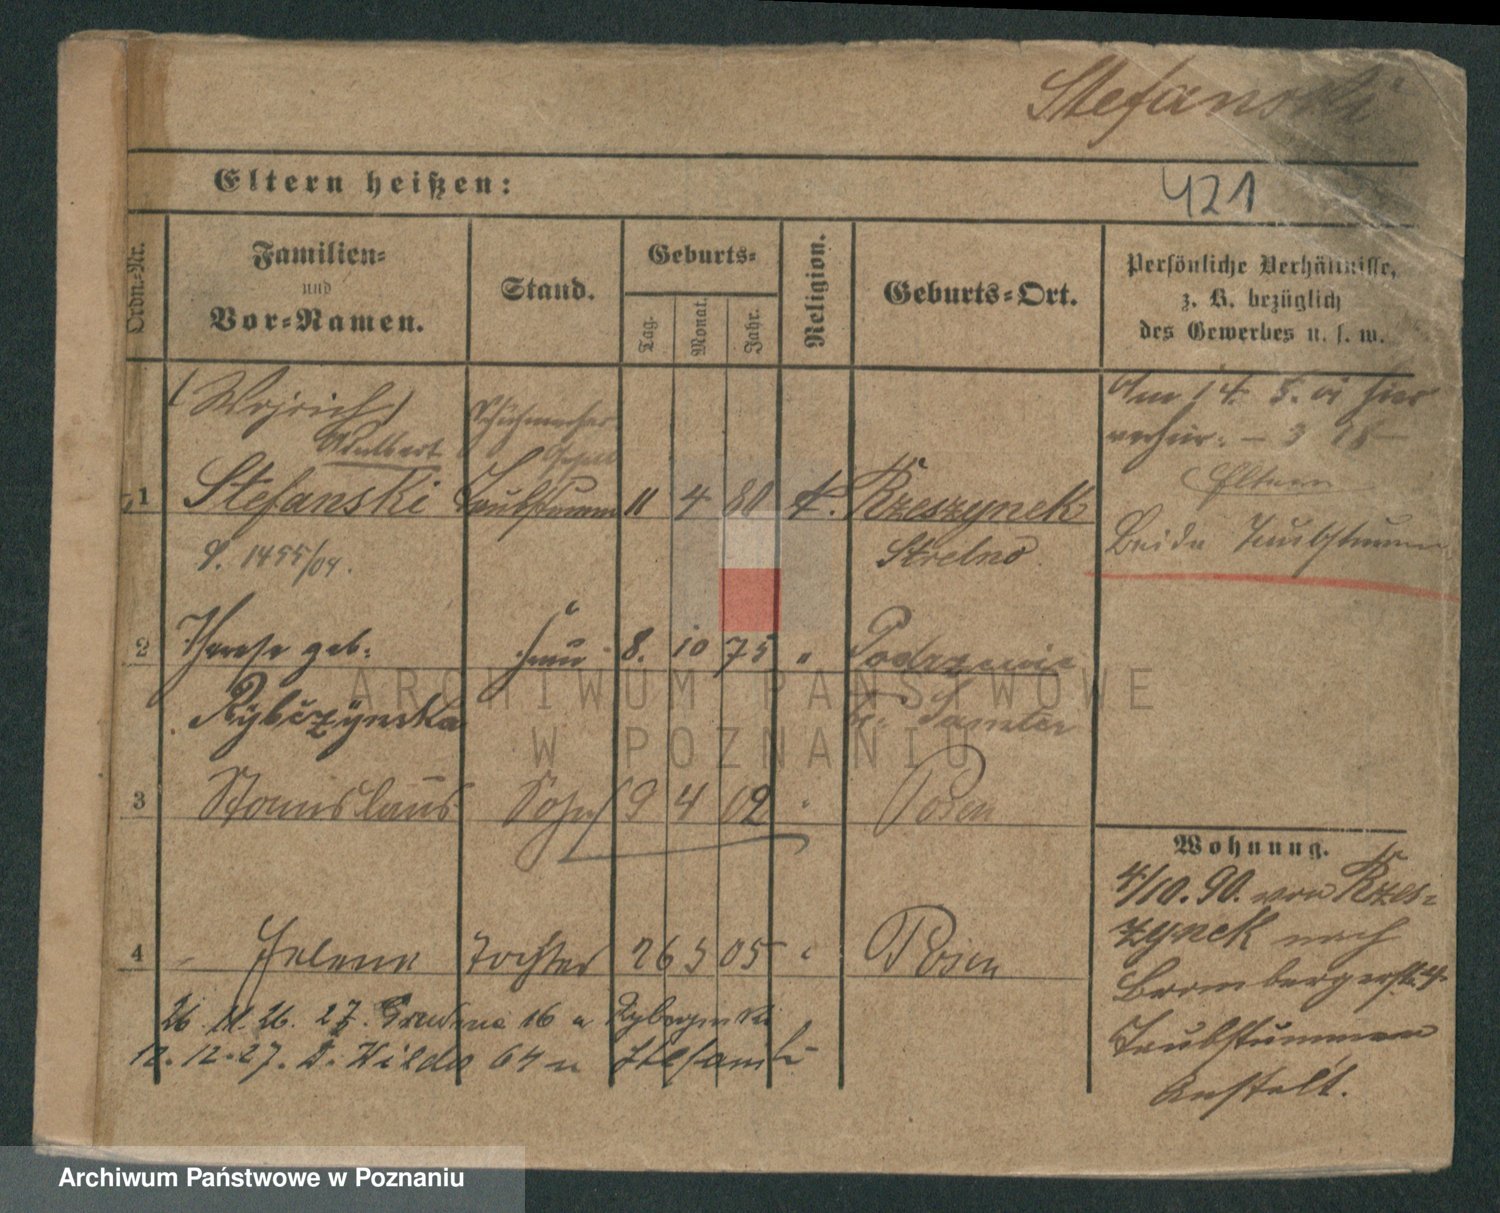 Stefanski
Eltern heißen:
421
Ordn.-Nr.
Familien-
und
Vor-Namen.
Stand.
Geburts-
Tag.
Monat.
Jahr.
Religion.
Geburts-Ort.
Persönliche Verhältnisse,
z. B. bezüglich
des Gewerbes u. s. w.
(Wojciech)
Adalbert
Schuhmacher
1 Stefanski Taubstumm 11 4 80 k. Rzeszynek
1455/04.
Strelno
Am 14.
Eltern
Beide Taubstumm
2 Therese geb. Frau 8. 10 75 " Podrzewie
Rybczynska
Kr. Samter
3 Stanislaus Sohn 9 4 02 " Posen
4 Helene Tochter 26 5 05 " Posen
26. 11. 26. 27. Grudnia 16 u Rybczynski
12. 12. 27. D. Wilda 64 u Stefanski
Wohnung.
4/10. 90. von Rzes-
zynek nach
Brombergerstr. 4.
Taubstummen
Anstalt.
ARCHIWUM PAŃSTWOWE
W POZNANIU
Archiwum Państwowe w Poznaniu